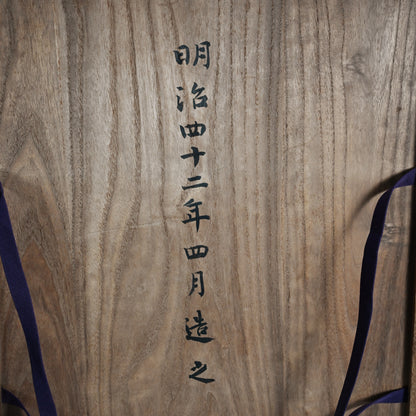 明治四十二年四月造之